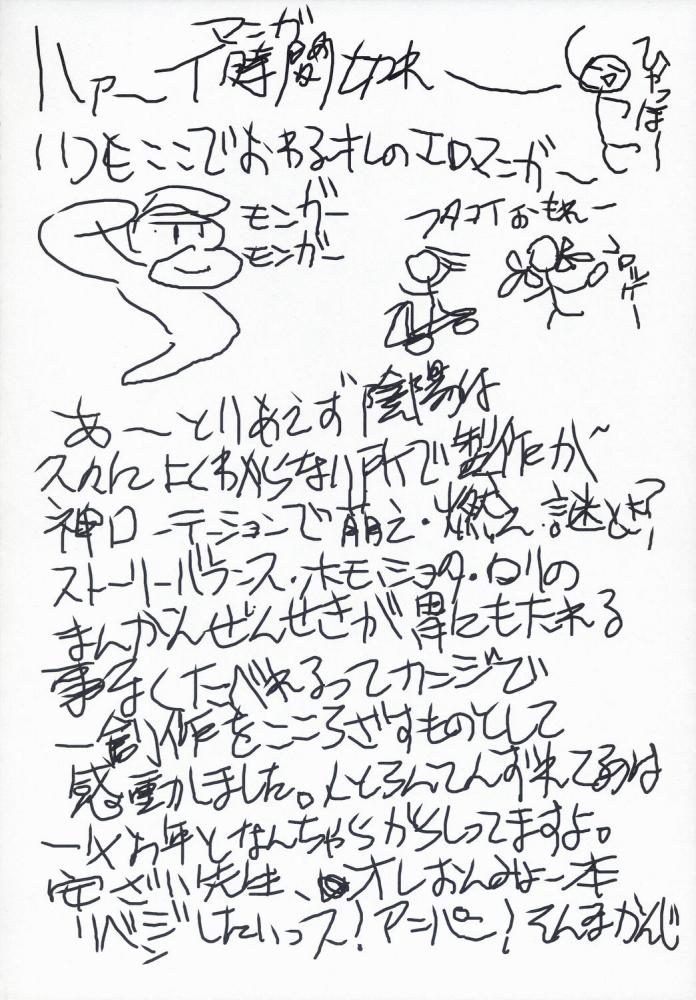 マニガ
ハァーイ 時間
ひゃっほー
いつもここでおわるオレのエロマニガー
モンガー
モンガー
フタコイおもれー
あーとりあえず陰陽は
久々によくわからない所で製作が
神ローテーションで萌え・燃え・謎とき?
ストーリーバランス・ホモ・ショタ・ロリの
まんかんぜんせきが胃にもたれる
事なくたべれるってカンジで
一創作をこころざすものとして
感動しました。
一×お年となんちゃらがらしってますよ。
安ざい先生、オレおんみょー本
リベンジしたいっス!アニパー!そんなかんじ